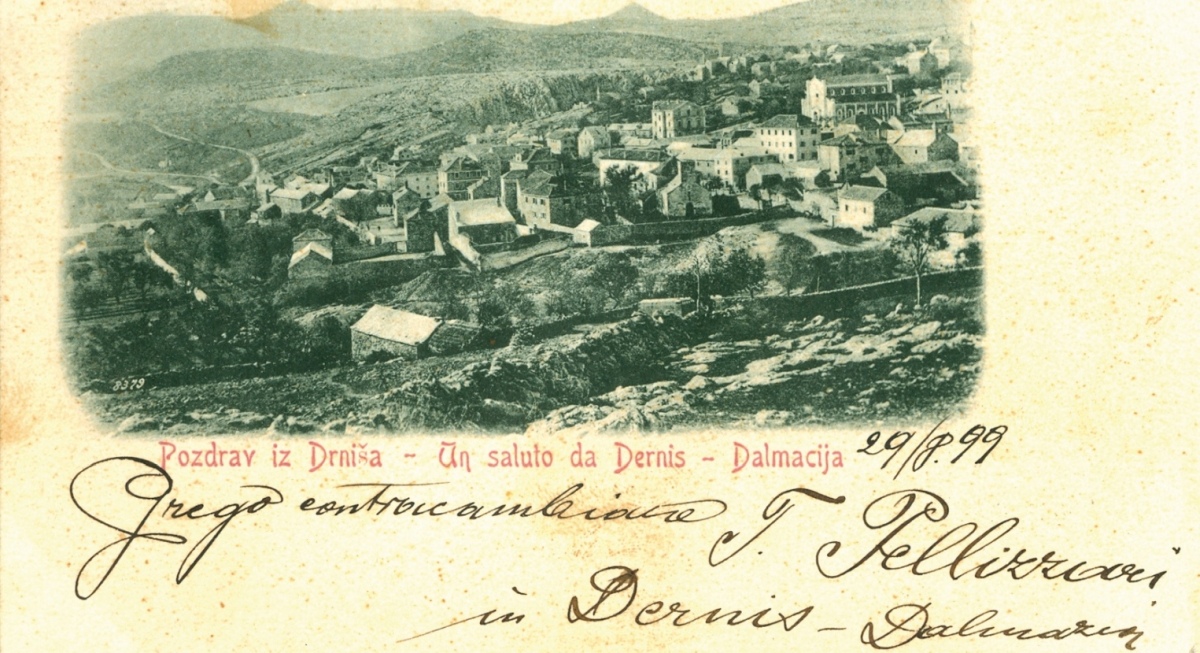 3379
Pozdrav iz Drniša - Un saluto da Dernis - Dalmacija 29/8.99
Prego contracambiare T. Pellizzari
in Dernis - Dalmazia